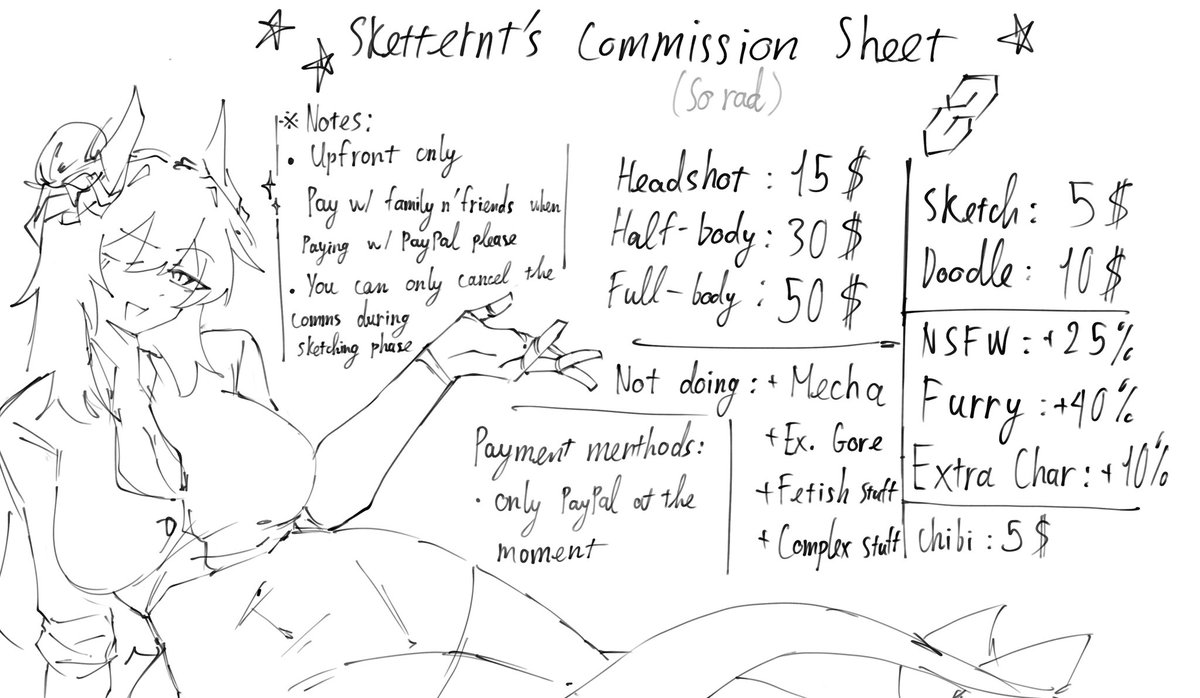 Sketternt's Commission Sheet
(So rad)
※ Notes:
• Upfront only
Pay w/ family n' friends when
Paying w/ PayPal please
• You can only cancel the
comms during
sketching phase
Headshot : 15 $
Half-body : 30 $
Full-body : 50 $
Sketch : 5 $
Doodle : 10 $
NSFW : +25%
Furry : +40%
Extra Char : +10%
Chibi : 5 $
Not doing : + Mecha
+ Ex. Gore
+ Fetish stuff
+ Complex stuff
Payment menthods:
• only PayPal at the
moment